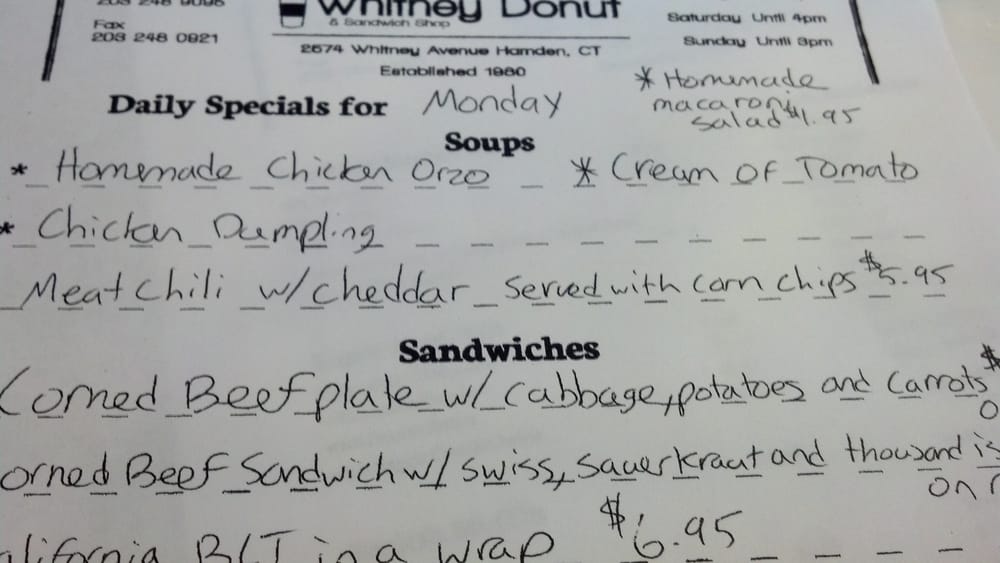 Fax
203 248 0821
Whitney Donut
& Sandwich Shop
2674 Whitney Avenue Hamden, CT
Established 1980
Saturday Until 4pm
Sunday Until 3pm
Daily Specials for Monday
* Homemade
macaroni
salad $1.95
Soups
* Homemade Chicken Orzo * Cream of Tomato
* Chicken Dumpling
Meat Chili w/ cheddar served with corn chips $5.95
Sandwiches
Corned Beef plate w/ cabbage, potatoes and carrots $
orned Beef Sandwich w/ swiss, sauerkraut and thousand is
on r
alifornia BLT in a wrap $6.95